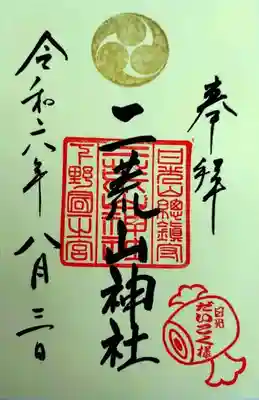 奉拝
二荒山神社
令和六年八月三日
日光総鎮守
下野國一之宮
日光
だいこく様